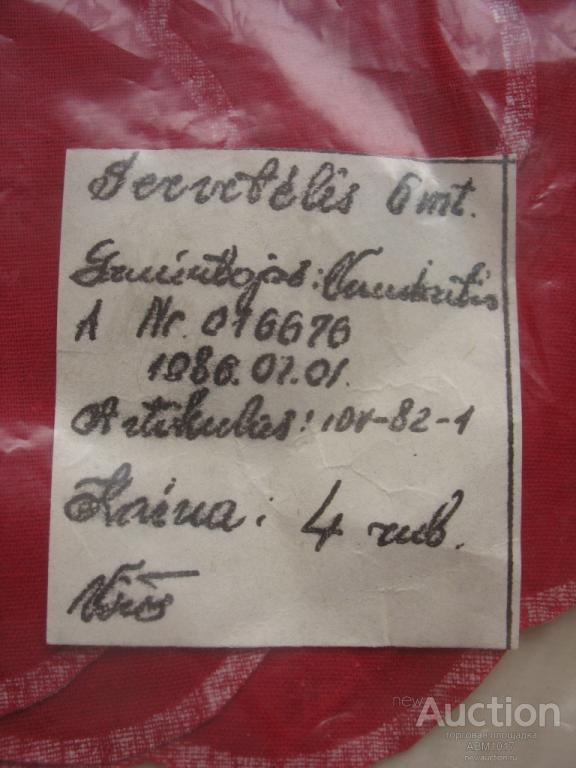 Servetėlis 6 mt.
Gamintojas:
A Nr. 016676
1986.07.01.
Artikulas: 10V-82-1
Kaina: 4 rub.
new
Auction
торговая площадка
ABM1017
newauction.ru